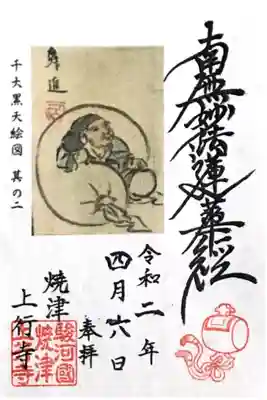 南無妙法蓮華経
千大黒天絵図 其の二
令和二年
四月廿六日
奉拝
焼津
上行寺
駿河國
焼津
上行寺